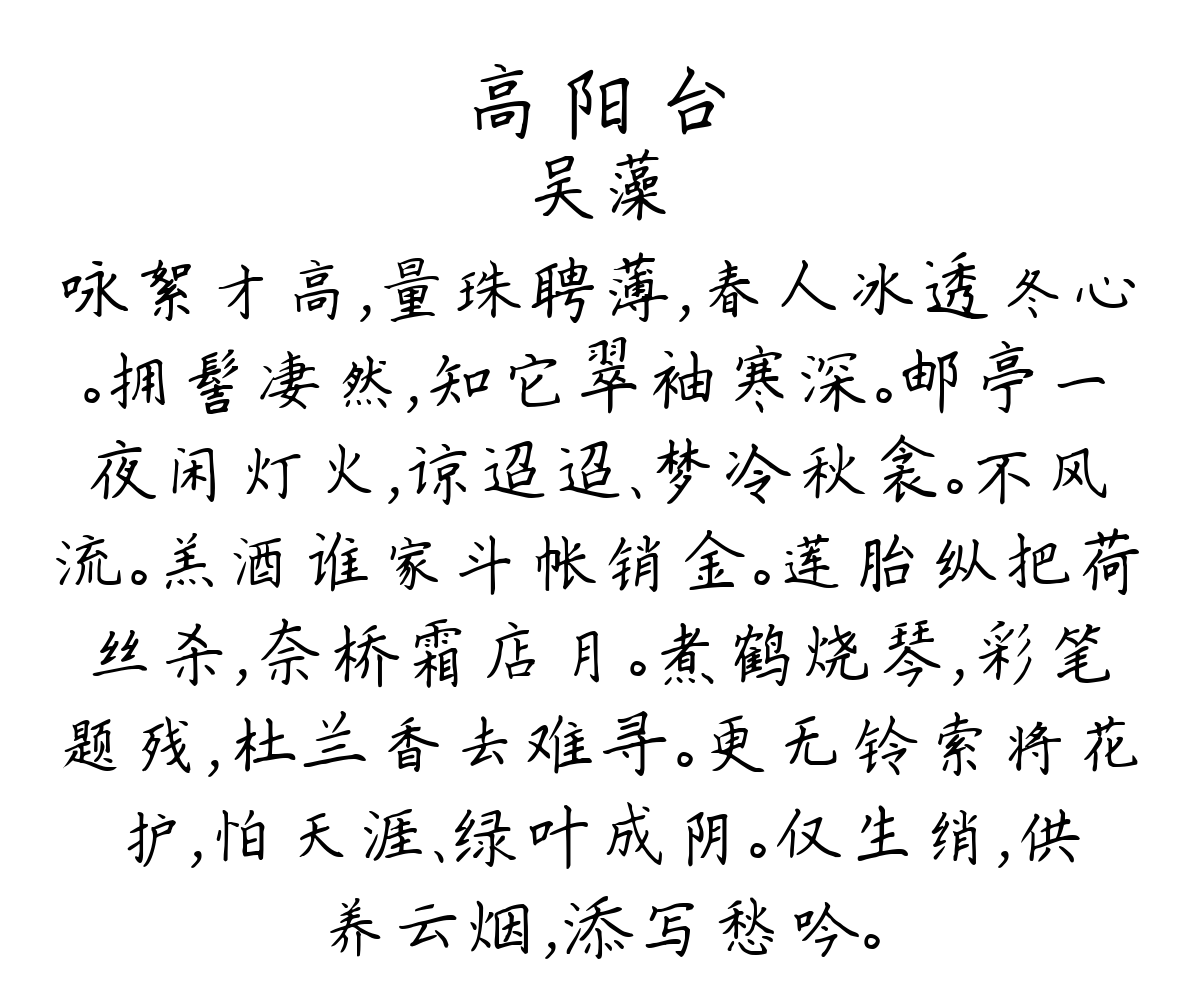 高阳台
吴藻
咏絮才高,量珠聘薄,春人冰透冬心
。拥髻凄然,知它翠袖寒深。邮亭一
夜闲灯火,谅迢迢、梦冷秋衾。不风
流。羔酒谁家斗帐销金。莲胎纵把荷
丝杀,奈桥霜店月。煮鹤烧琴,彩笔
题残,杜兰香去难寻。更无铃索将花
护,怕天涯、绿叶成阴。仅生绡,供
养云烟,添写愁吟。